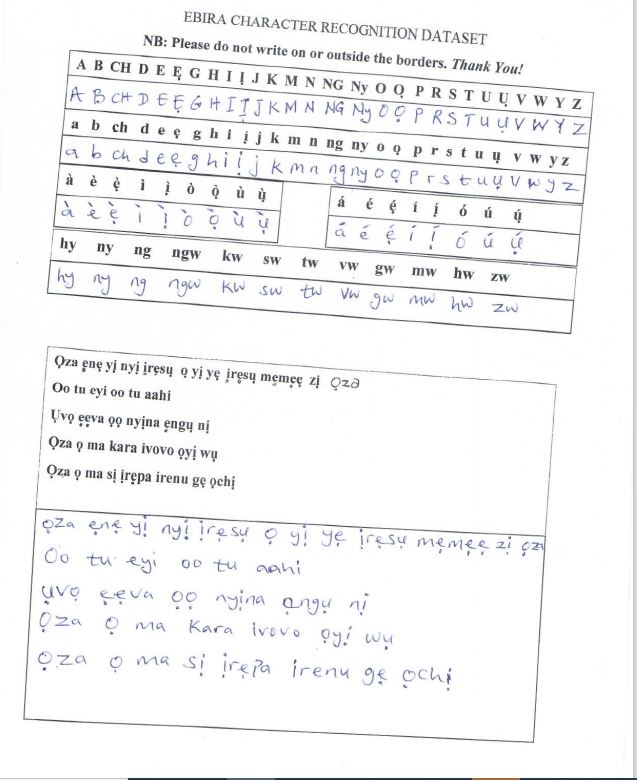 EBIRA CHARACTER RECOGNITION DATASET
NB: Please do not write on or outside the borders. Thank You!
A B CH D E Ẹ G H I Ị J K M N NG Ny O Ọ P R S T U Ụ V W Y Z
A B CH D E Ẹ G H I Ị J K M N NG Ny O Ọ P R S T U Ụ V W Y Z
a b ch d e ẹ g h i ị j k m n ng ny o ọ p r s t u ụ v w y z
a b ch d e ẹ g h i ị j k m n ng ny o ọ p r s t u ụ v w y z
à è ẹ̀ ì ị̀ ò ọ̀ ù ụ̀
à è ẹ̀ ì ị̀ ò ọ̀ ù ụ̀
á é ẹ́ í ị́ ó ú ụ́
á é ẹ́ í ị́ ó ú ụ́
hy ny ng ngw kw sw tw vw gw mw hw zw
hy ny ng ngw kw sw tw vw gw mw hw zw
Ọza ẹnẹ yị nyị ịrẹsụ ọ yị yẹ ịrẹsụ mẹmẹẹ zị ọza
Oo tu eyi oo tu aahi
Ụvọ ẹẹva ọọ nyịna ẹngụ nị
Ọza ọ ma kara ivovo ọyị wụ
Ọza ọ ma sị ịrẹpa irenu gẹ ọchị
Ọza ẹnẹ yị nyị ịrẹsụ ọ yị yẹ ịrẹsụ mẹmẹẹ zị ọza
Oo tu eyi oo tu aahi
Ụvọ ẹẹva ọọ nyịna ạngụ nị
Ọza ọ ma kara ivovo ọyị wụ
Ọza ọ ma sị ịrẹpa irenu gẹ ọchị